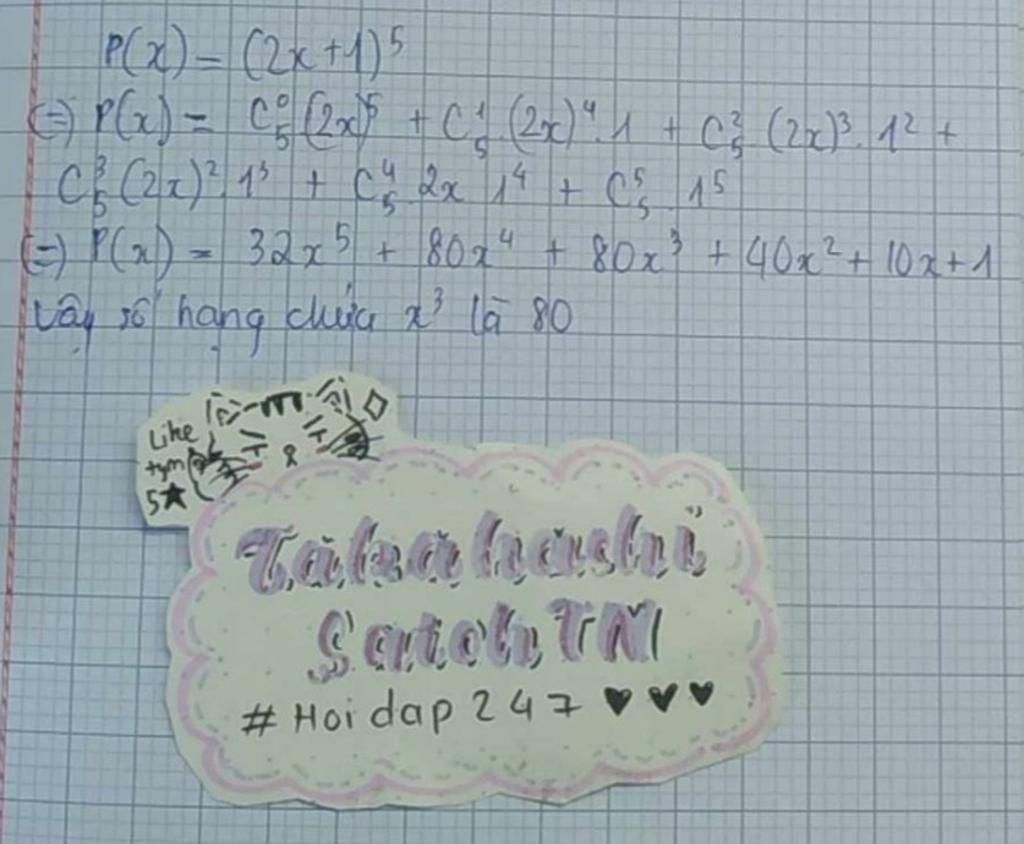 P(x) = (2x+1)⁵
(=) P(x) = C₅⁰ (2x)⁵ + C₅¹ (2x)⁴.1 + C₅² (2x)³.1² +
C₅³ (2x)².1³ + C₅⁴ 2x 1⁴ + C₅⁵ 1⁵
(=) P(x) = 32x⁵ + 80x⁴ + 80x³ + 40x² + 10x + 1
Vậy số hạng chứa x³ là 80
Like
tym
5★
Takahashi
Satoh TM
#Hoidap247 ♥♥♥